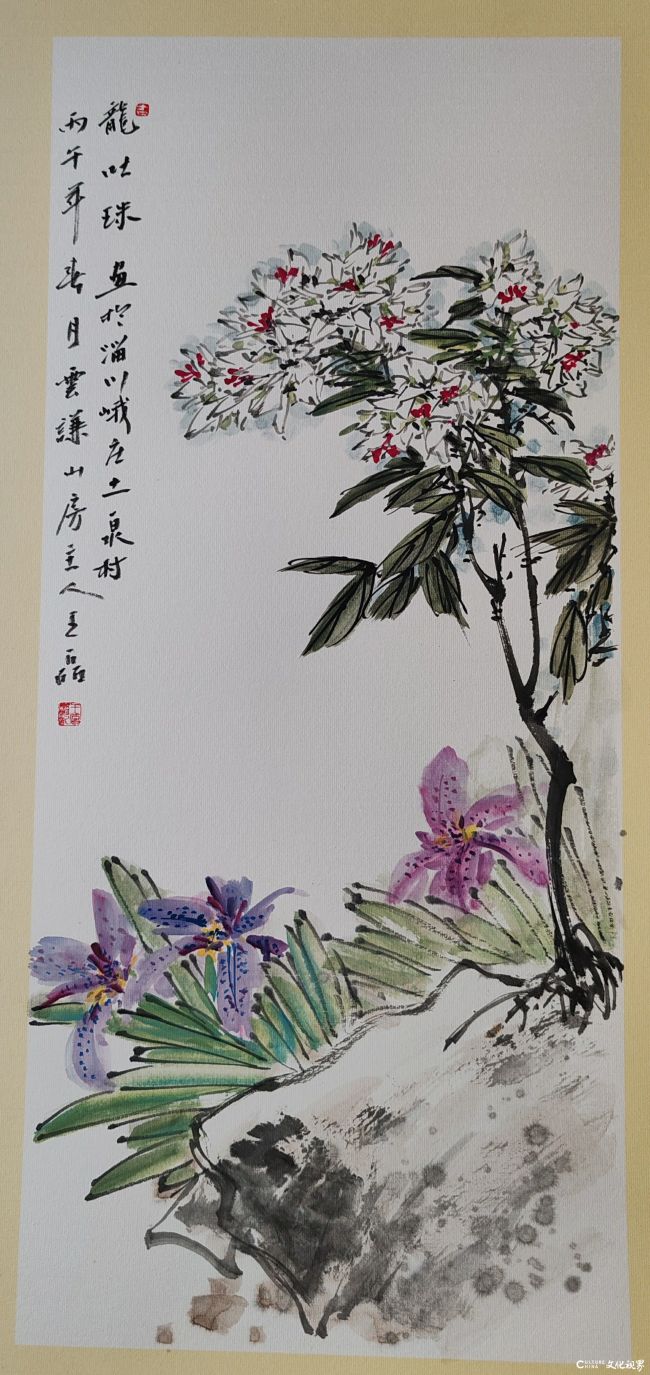 龍吐珠 画於淄川峨庄土泉村
丙午年春月雲謙山房主人王磊
CULTURE CHINA 文化视界